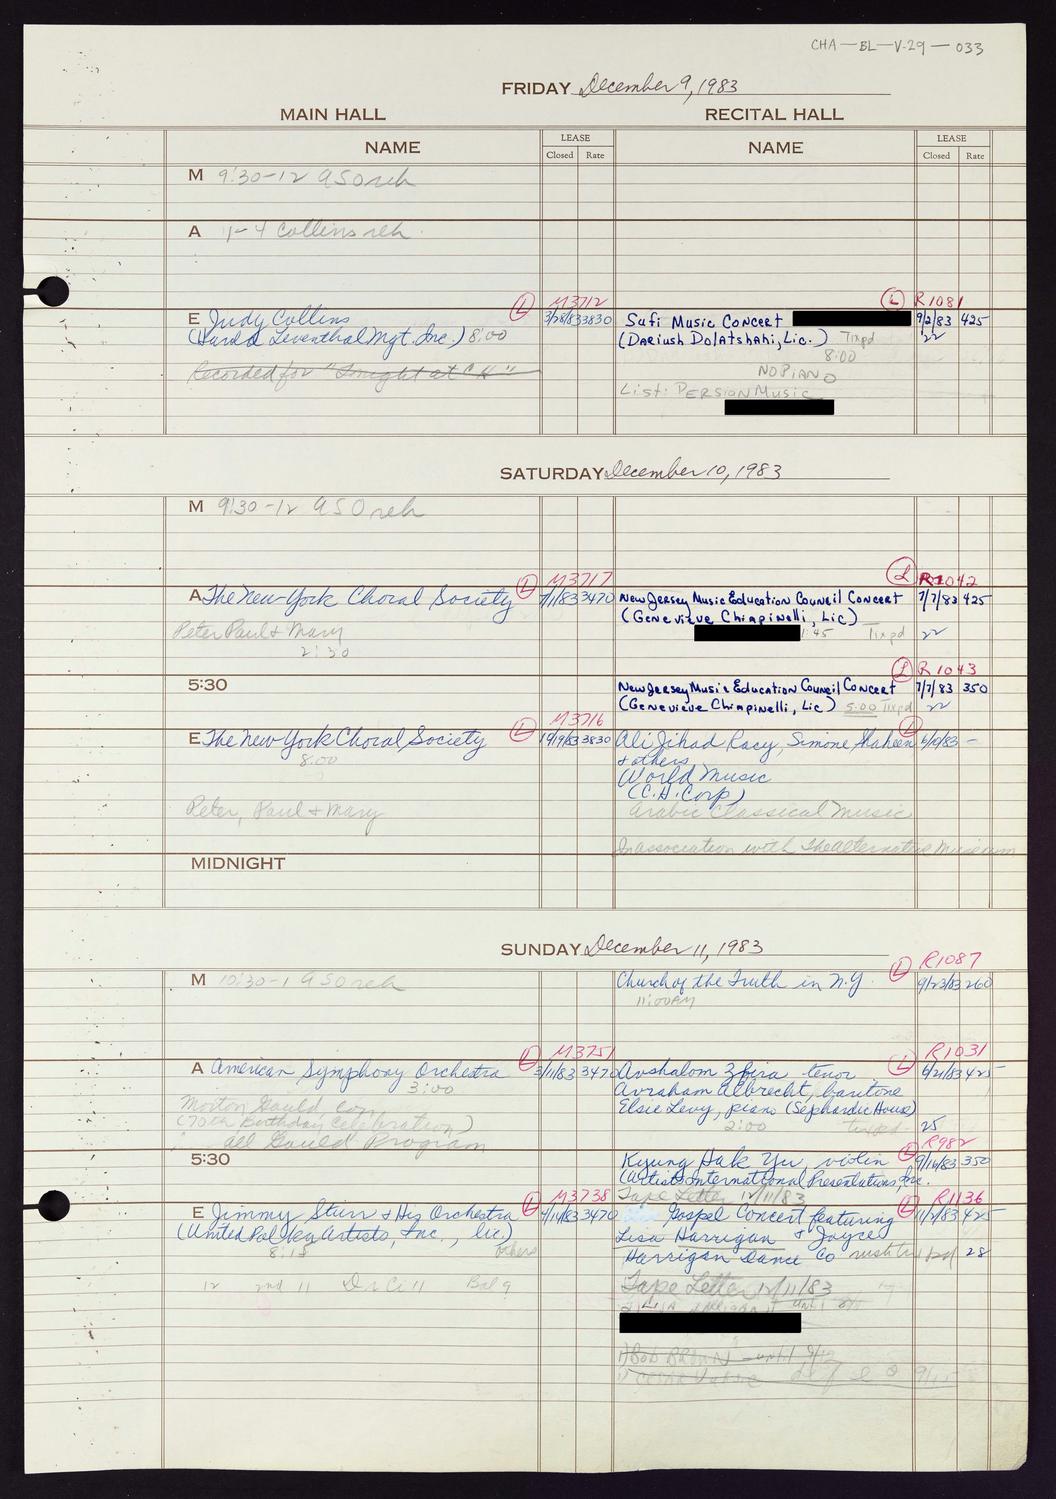 CHA-BL-V.29-033
FRIDAY December 9, 1983
MAIN HALL RECITAL HALL
NAME LEASE Closed Rate NAME LEASE Closed Rate
M 9:30-12 ASO reh
A 1-4 Collins reh
(L) M3712 (L) R1081
E Judy Collins 3/28/83 3830
(Harold Leventhal Mgt. Inc.) 8:00
Recorded for "Tonight at C H"
Sufi Music Concert 9/2/83 425
(Dariush Dolatshahi, Lic.) Tixpd 22
8:00
NO PIANO
List: PERSIAN Music
SATURDAY December 10, 1983
M 9:30-12 ASO reh
(L) M3717 (L) R1042
A The New York Choral Society 7/11/83 3470
Peter Paul & Mary
2:30
New Jersey Music Education Council Concert 7/7/83 425
(Genevieve Chinpinelli, Lic)
1:45 Tixpd 22
(L) R1043
5:30
New Jersey Music Education Council Concert 7/7/83 350
(Genevieve Chinpinelli, Lic) 5:00 Tixpd 22
(L) M3716 (L)
E The New York Choral Society 3830
8:00
Peter, Paul & Mary
Ali Jihad Racy, Simone Shaheen –
& others
World Music
(C.H. Corp)
Arabic Classical Music
In association with The Alternative Museum
MIDNIGHT
SUNDAY December 11, 1983
(L) R1087
M 10:30-1 ASO reh
Church of the Truth in N.Y. 9/23/83 260
11:00AM
(L) M3751 (L) R1031
A American Symphony Orchestra 3/11/83 3470
3:00
Morton Gould, con
(70th Birthday Celebration)
"All Gould" Program
Avshalom Zfira tenor 6/21/83 425
Avraham Albrecht, baritone
Elsie Levy, piano (Sephardic House)
2:00 tixpd 25
(L) R982
5:30
Kyung Hak Yu, violin 9/16/83 350
(Artists International Presentations, Inc.
Tape Letter 12/11/83
(L) M3738 (L) R1136
E Jimmy Sturr & His Orchestra 3470
(United Polka Artists, Inc., lic)
8:15 others
12 2nd 11 Dr Cir 11 Bal 9
Gospel Concert featuring 11/2/83 425
Lisa Harrigan & Joyce
Harrigan Dance Co 28
Tape Letter 12/11/83
1) BOB BROWN - until 9/12
9/15